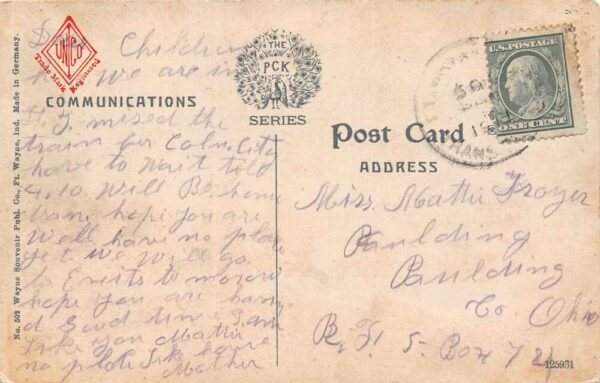 No. 502 Wayne Souvenir Publ. Co., Ft. Wayne, Ind. Made in Germany.
Trade Mark Registered
COMMUNICATIONS
THE
PCK
SERIES
Post Card
ADDRESS
U.S. POSTAGE
ONE CENT
Children
we are in
missed the
train for Colu. City
have to wait till
4.10. Will Be home
hope you are
Well have no place
yet we will go
to morow
hope you are having
a Good time I am
Like you Mattie
no place Like home
Mother
Miss. Mattie Troyer
Paulding
Paulding
Co. Ohio
R. F. 5- Box 72
125931